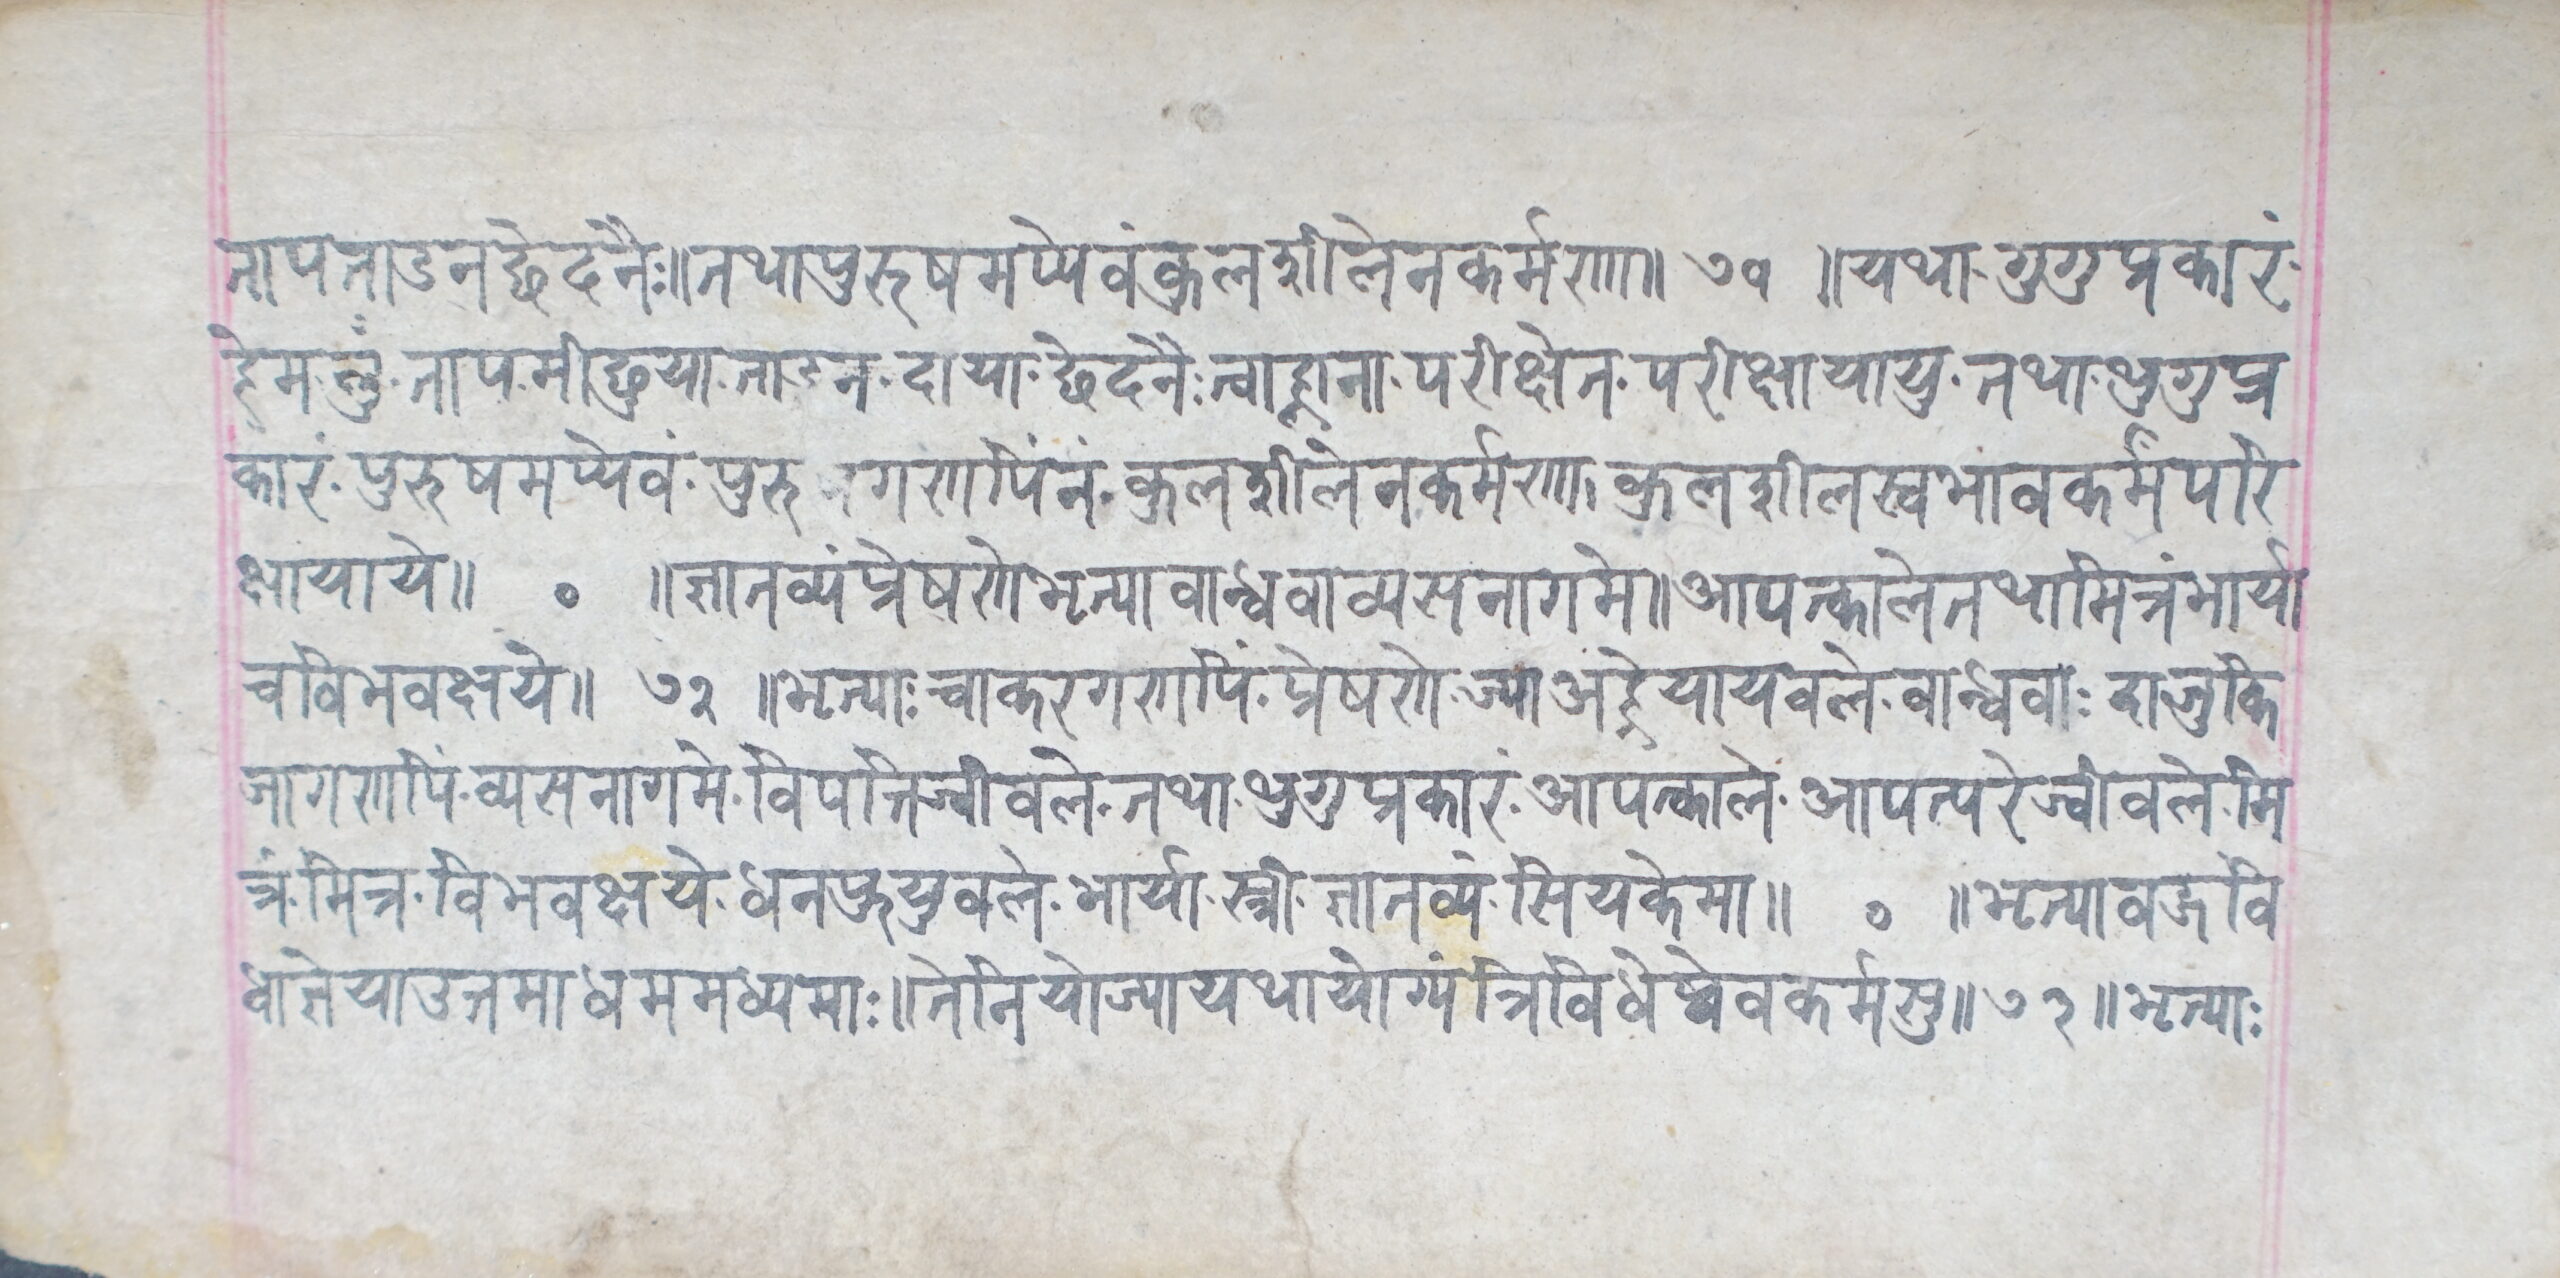 तापताडनछेदनैः॥तथापुरुषमप्येवंकुलशीलेनकर्मणा॥ ७१ ॥यथा·गुगुप्रकारं·
हेम·लुँ·तापमीछुया·ताडन·दाया·छेदनैः त्वाह्लाना·परीक्षेत·परीक्षायायु·तथा·थुगुप्र
कारं·पुरुषमप्येवं·पुरु गणपिंनं·कुलशीलेनकर्मणा कुलशीलस्वभावकर्मपरि
क्षायाये॥ ० ॥ज्ञातव्यंप्रेषणेभृत्यावान्धवाव्यसनागमे॥आपत्कालेतथामित्रंभार्या
चविभवक्षये॥ ७२ ॥भृत्याः चाकरगणपिं·प्रेषणे·ज्याअंह्रेयायवले·वान्धवाः दाजुकि
जागणपिं·व्यसनागमे·विपत्तिज्वीवले·तथा·थुगुप्रकारं·आपत्काले·आपत्परेज्वीवले·मि
त्रं·मित्र·विभवक्षये·धनफुयुवले·भार्या·स्त्री·ज्ञातव्यं·सियकेमा॥ ० ॥भृत्यावहुवि
धाज्ञेयाउत्तमाधममध्यमाः॥तेनियोज्यायथायोग्यंत्रिविधेष्वेवकर्मसु॥७३॥भृत्याः